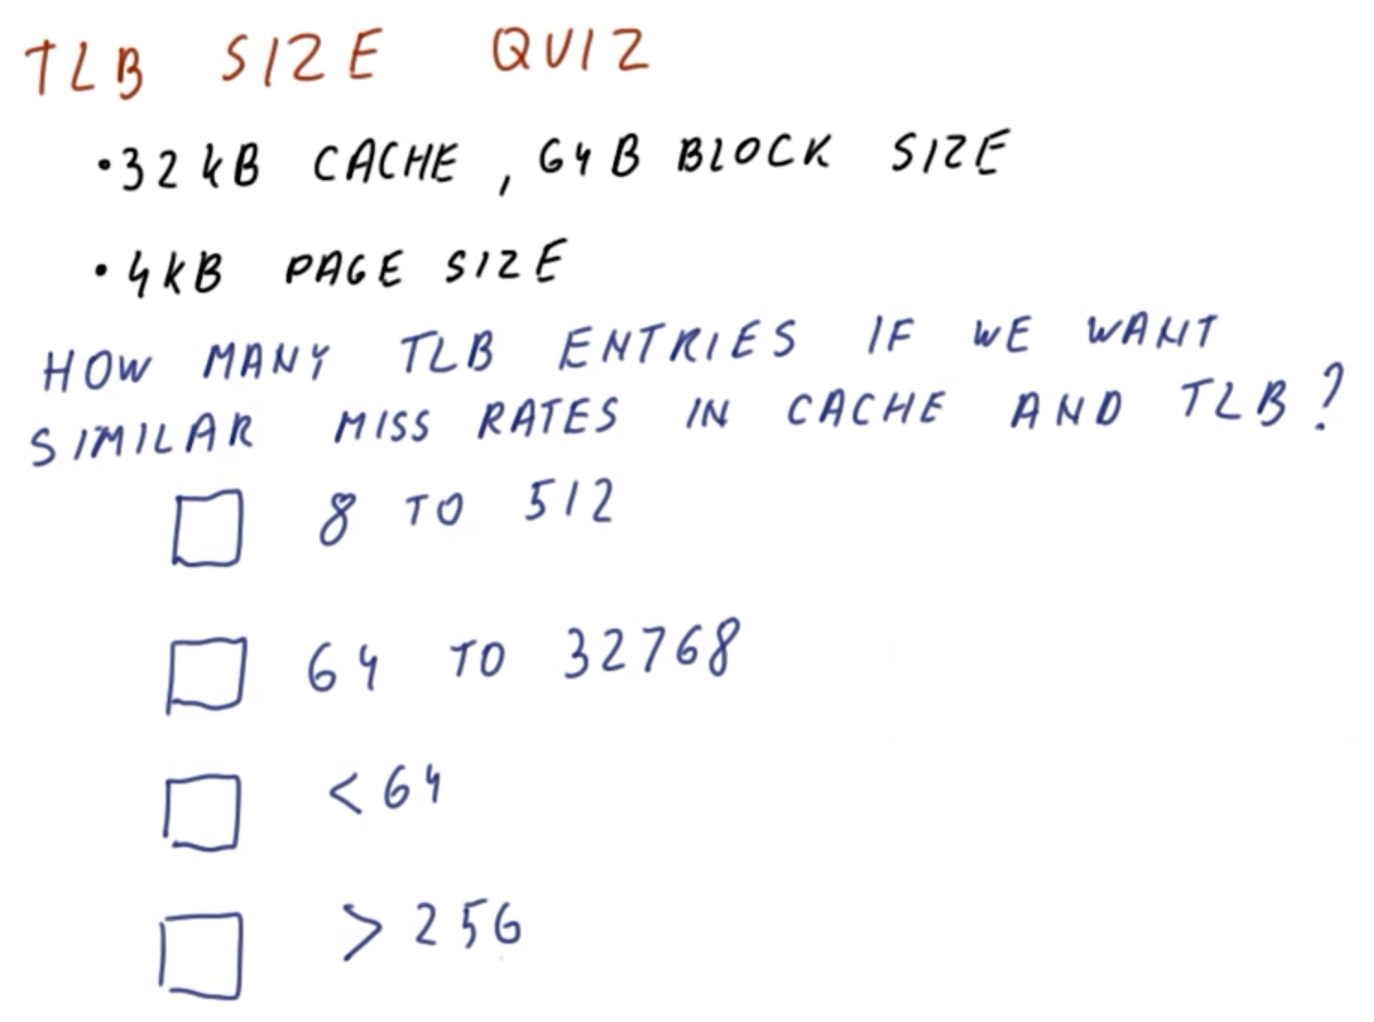 TLB SIZE QUIZ
• 32kB CACHE, 64B BLOCK SIZE
• 4kB PAGE SIZE
HOW MANY TLB ENTRIES IF WE WANT
SIMILAR MISS RATES IN CACHE AND TLB?
8 TO 512
64 TO 32768
< 64
> 256